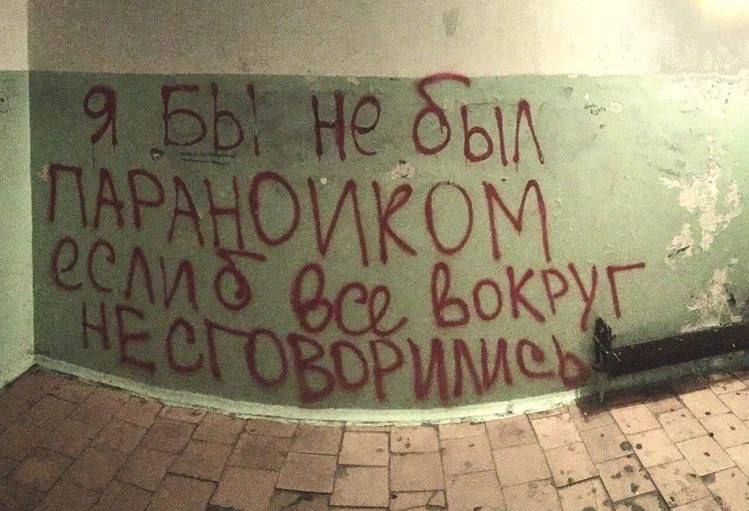 Я БЫ не был
ПАРАНОИКОМ
если б все вокруг
НЕСГОВОРИЛИСЬ